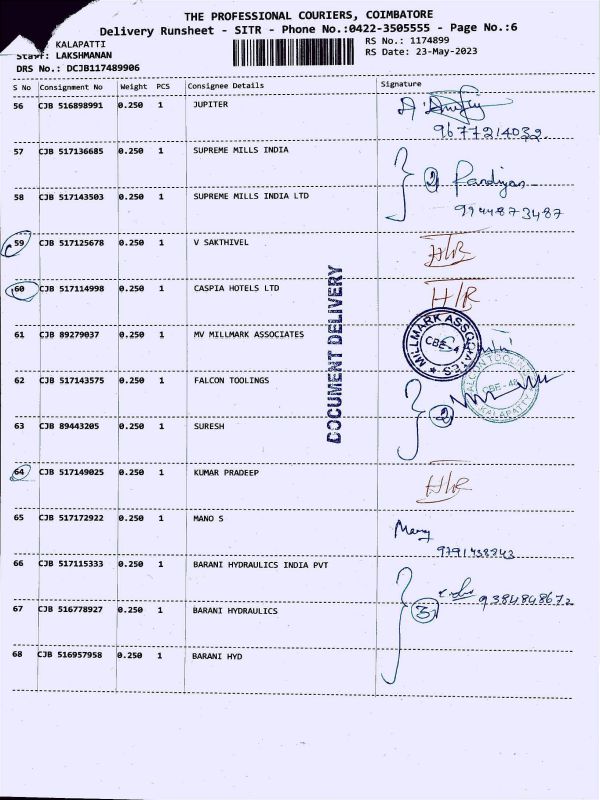 THE PROFESSIONAL COURIERS, COIMBATORE
Delivery Runsheet - SITR - Phone No.:0422-3505555 - Page No.:6
KALAPATTI
RS No.: 1174899
Staff: LAKSHMANAN
RS Date: 23-May-2023
DRS No.: DCJB117489906
S No Consignment No Weight PCS Consignee Details Signature
56 CJB 516898991 0.250 1 JUPITER
9677214032
57 CJB 517136685 0.250 1 SUPREME MILLS INDIA
2 Pandiyan
58 CJB 517143503 0.250 1 SUPREME MILLS INDIA LTD
9944873487
59 CJB 517125678 0.250 1 V SAKTHIVEL H/R
60 CJB 517114998 0.250 1 CASPIA HOTELS LTD H/R
DOCUMENT DELIVERY
61 CJB 89279037 0.250 1 MV MILLMARK ASSOCIATES
MILLMARK ASSOCIATES
CBE-4
62 CJB 517143575 0.250 1 FALCON TOOLINGS
FALCON TOOLINGS
CBE - 48
KALAPATTY
2
63 CJB 89443205 0.250 1 SURESH
64 CJB 517149025 0.250 1 KUMAR PRADEEP H/R
65 CJB 517172922 0.250 1 MANO S
9791438843
66 CJB 517115333 0.250 1 BARANI HYDRAULICS INDIA PVT
3 9384848672
67 CJB 516778927 0.250 1 BARANI HYDRAULICS
68 CJB 516957958 0.250 1 BARANI HYD